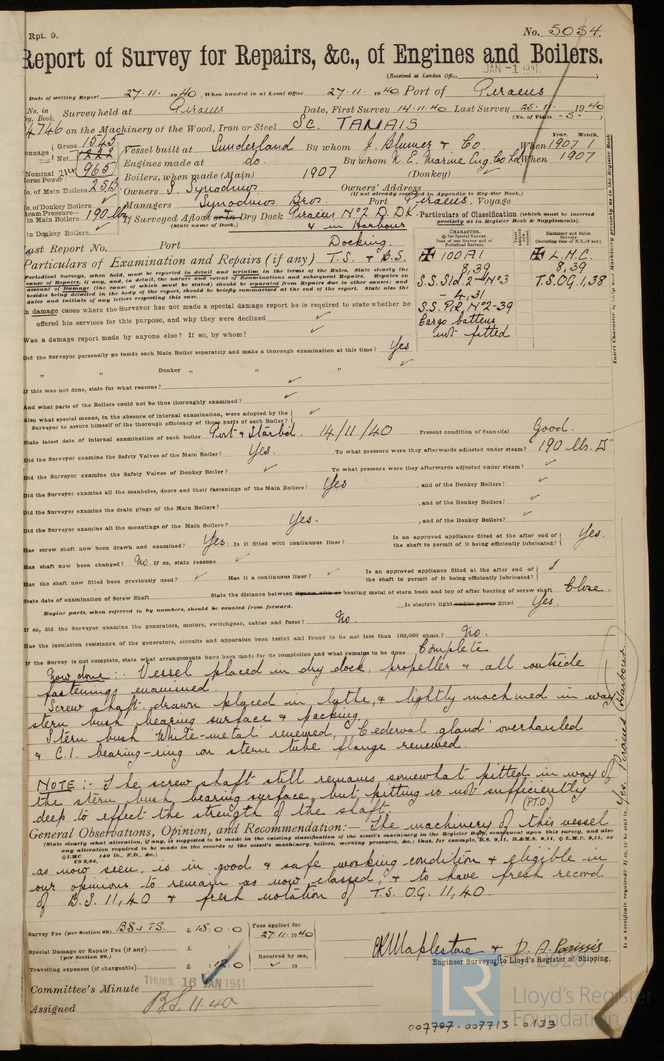 Rpt. 9.
No. 5054.
Report of Survey for Repairs, &c., of Engines and Boilers.
(Received at London Office
JAN -1 1941
Date of writing Report 27.11.1940 When handed in at Local Office 27.11.1940 Port of Piraeus
No. in Reg. Book. Survey held at Piraeus Date, First Survey 14.11.40 Last Survey 25.11.1940
(No. of Visits 5)
on the Machinery of the Wood, Iron or Steel Sc. TANAIS
Gross 1545
Net
Vessel built at Sunderland By whom J. Blumer & Co When 1907 1
Year. Month.
Engines made at do. By whom N.E. Marine Eng. Co Ld When 1907
Nominal Horse Power
Boilers, when made (Main) 1907 (Donkey)
No. of Main Boilers 2SB
Owners S. Synodinos Owners' Address
(if not already recorded in Appendix to Register Book.)
No. of Donkey Boilers
Managers Synodinos Bros. Port Piraeus. Voyage
Steam Pressure in Main Boilers 190 lb
If Surveyed Afloat or in Dry Dock Piraeus No 2 D.Dk. & in Harbour
(State name of Dock.)
in Donkey Boilers
Last Report No. Port Docking.
Particulars of Examination and Repairs (if any) T.S. & B.S.
Particulars of Classification (which must be inserted precisely as in Register Book & Supplements).
✠ 100A1
8,39
S.S. Sld. 2nd No 3
- 4,31
S.S. Pir. No 2-39
Cargo battens not fitted
✠ L.M.C.
8,39
T.S.OG.1,38
Periodical surveys, when held, must be reported in detail and seriatim in the terms of the Rules. State clearly the cause of Repairs, if any, and, in detail, the nature and extent of Examinations and subsequent Repairs.
In damage cases where the Surveyor has not made a special damage report he is required to state whether he offered his services for this purpose, and why they were declined
Was a damage report made by anyone else? If so, by whom?
Did the Surveyor personally go inside each Main Boiler separately and make a thorough examination at this time? Yes
" " Donkey " " "
If this was not done, state for what reasons?
And what parts of the Boilers could not be thus thoroughly examined?
Also what special means, in the absence of internal examination, were adopted by the Surveyor to assure himself of the thorough efficiency of those parts of each Boiler?
State latest date of internal examination of each boiler Port & Starbd. 14/11/40 Present condition of funnel(s) Good.
Did the Surveyor examine the Safety Valves of the Main Boiler? Yes. To what pressure were they afterwards adjusted under steam? 190 lbs.
Did the Surveyor examine the Safety Valves of Donkey Boiler? To what pressure were they afterwards adjusted under steam?
Did the Surveyor examine all the manholes, doors and their fastenings of the Main Boilers? Yes , and of the Donkey Boilers?
Did the Surveyor examine the drain plugs of the Main Boilers? , and of the Donkey Boilers?
Did the Surveyor examine all the mountings of the Main Boilers? Yes. , and of the Donkey Boilers?
Has screw shaft now been drawn and examined? Yes. Is it fitted with continuous liner? Is an approved appliance fitted at the after end of the shaft to permit of it being efficiently lubricated? Yes.
Has shaft now been changed? No. If so, state reasons
Has the shaft now fitted been previously used? Has it a continuous liner? Is an approved appliance fitted at the after end of the shaft to permit of it being efficiently lubricated?
State date of examination of Screw Shaft State the distance between lignum vitæ or bearing metal of stern bush and top of after bearing of screw shaft Close.
Engine parts, when referred to by numbers, should be counted from forward. Is electric light and/or power fitted Yes.
If so, did the Surveyor examine the generators, motors, switchgear, cables and fuses? No
Has the insulation resistance of the generators, circuits and apparatus been tested and found to be not less than 100,000 ohms? No.
If the Survey is not complete, state what arrangements have been made for its completion and what remains to be done Complete
Now done:- Vessel placed in dry dock, propeller & all outside
fastenings examined.
Screw shaft drawn placed in lathe, & lightly machined in way
stern bush bearing surface & packing.
Stern bush 'White-metal' renewed, 'Cederval gland' overhauled
& C.I. bearing-ring on stern tube flange renewed.
NOTE:- The screw shaft still remains somewhat pitted in way of
the stern bush bearing surface, but pitting is not sufficiently
deep to effect the strength of the shaft. (P.T.O.)
General Observations, Opinion, and Recommendation:- The machinery of this vessel
as now seen, is in good & safe working condition & eligible in
our opinions to remain as now classed, & to have fresh record
of B.S. 11,40 & fresh notation of T.S. O.G. 11,40.
Survey Fee (per Section 29) BS & TS. £ 15.0.0
Fees applied for 27.11.1940
Special Damage or Repair Fee (if any) (per Section 29.) £
Received by me,
Travelling expenses (if chargeable) £
Maplestone & D. A. Parissis
Engineer Surveyors to Lloyd's Register of Shipping.
Committee's Minute THURS. 16 JAN 1941
Assigned B.S. 11.40
LR
Lloyd's Register
Foundation
007707-007713-0133
Is a Certificate required? If so, to be sent to Yes. Piraeus Harbour.